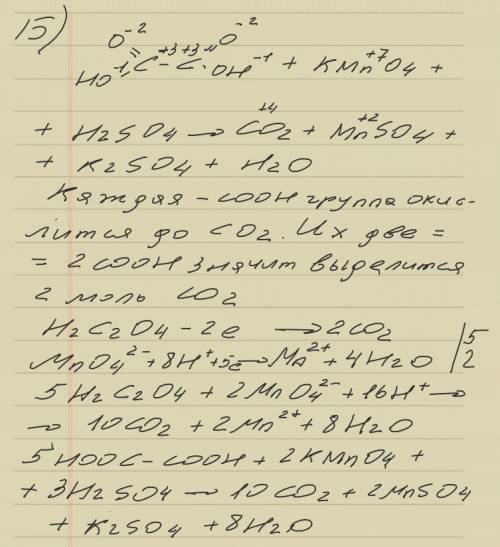 15) O⁻² O⁻²
HO⁻¹ C⁺³ – C⁺³ · OH⁻¹ + KMn⁺⁷O4 +
+ H2SO4 → C⁺⁴O2 + Mn⁺²SO4 +
+ K2SO4 + H2O
Каждая – COOH группа окис-
лится до CO2. Их две =
= 2 COOH значит выделится
2 моль CO2
H2C2O4 – 2e → 2CO2 | 5
MnO4²⁻ + 8H⁺ + 5e → Mn²⁺ + 4H2O | 2
5H2C2O4 + 2MnO4²⁻ + 16H⁺ →
→ 10CO2 + 2Mn²⁺ + 8H2O
5HOOC–COOH + 2KMnO4 +
+ 3H2SO4 → 10CO2 + 2MnSO4
+ K2SO4 + 8H2O